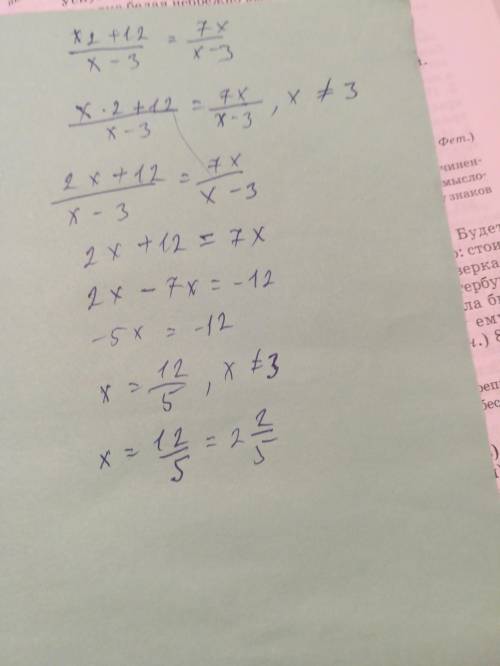 x2+12/x-3 = 7x/x-3
x·2+12/x-3 = 7x/x-3, x ≠ 3
2x+12/x-3 = 7x/x-3
2x+12=7x
2x-7x=-12
-5x=-12
x=12/5, x≠3
x=12/5=2 2/5
Фет.)
чинен-
мысло-
знаков
Будет
стои